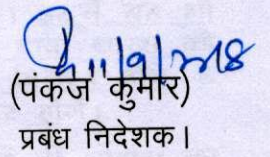 11/9/2018
(पंकज कुमार)
प्रबंध निदेशक।